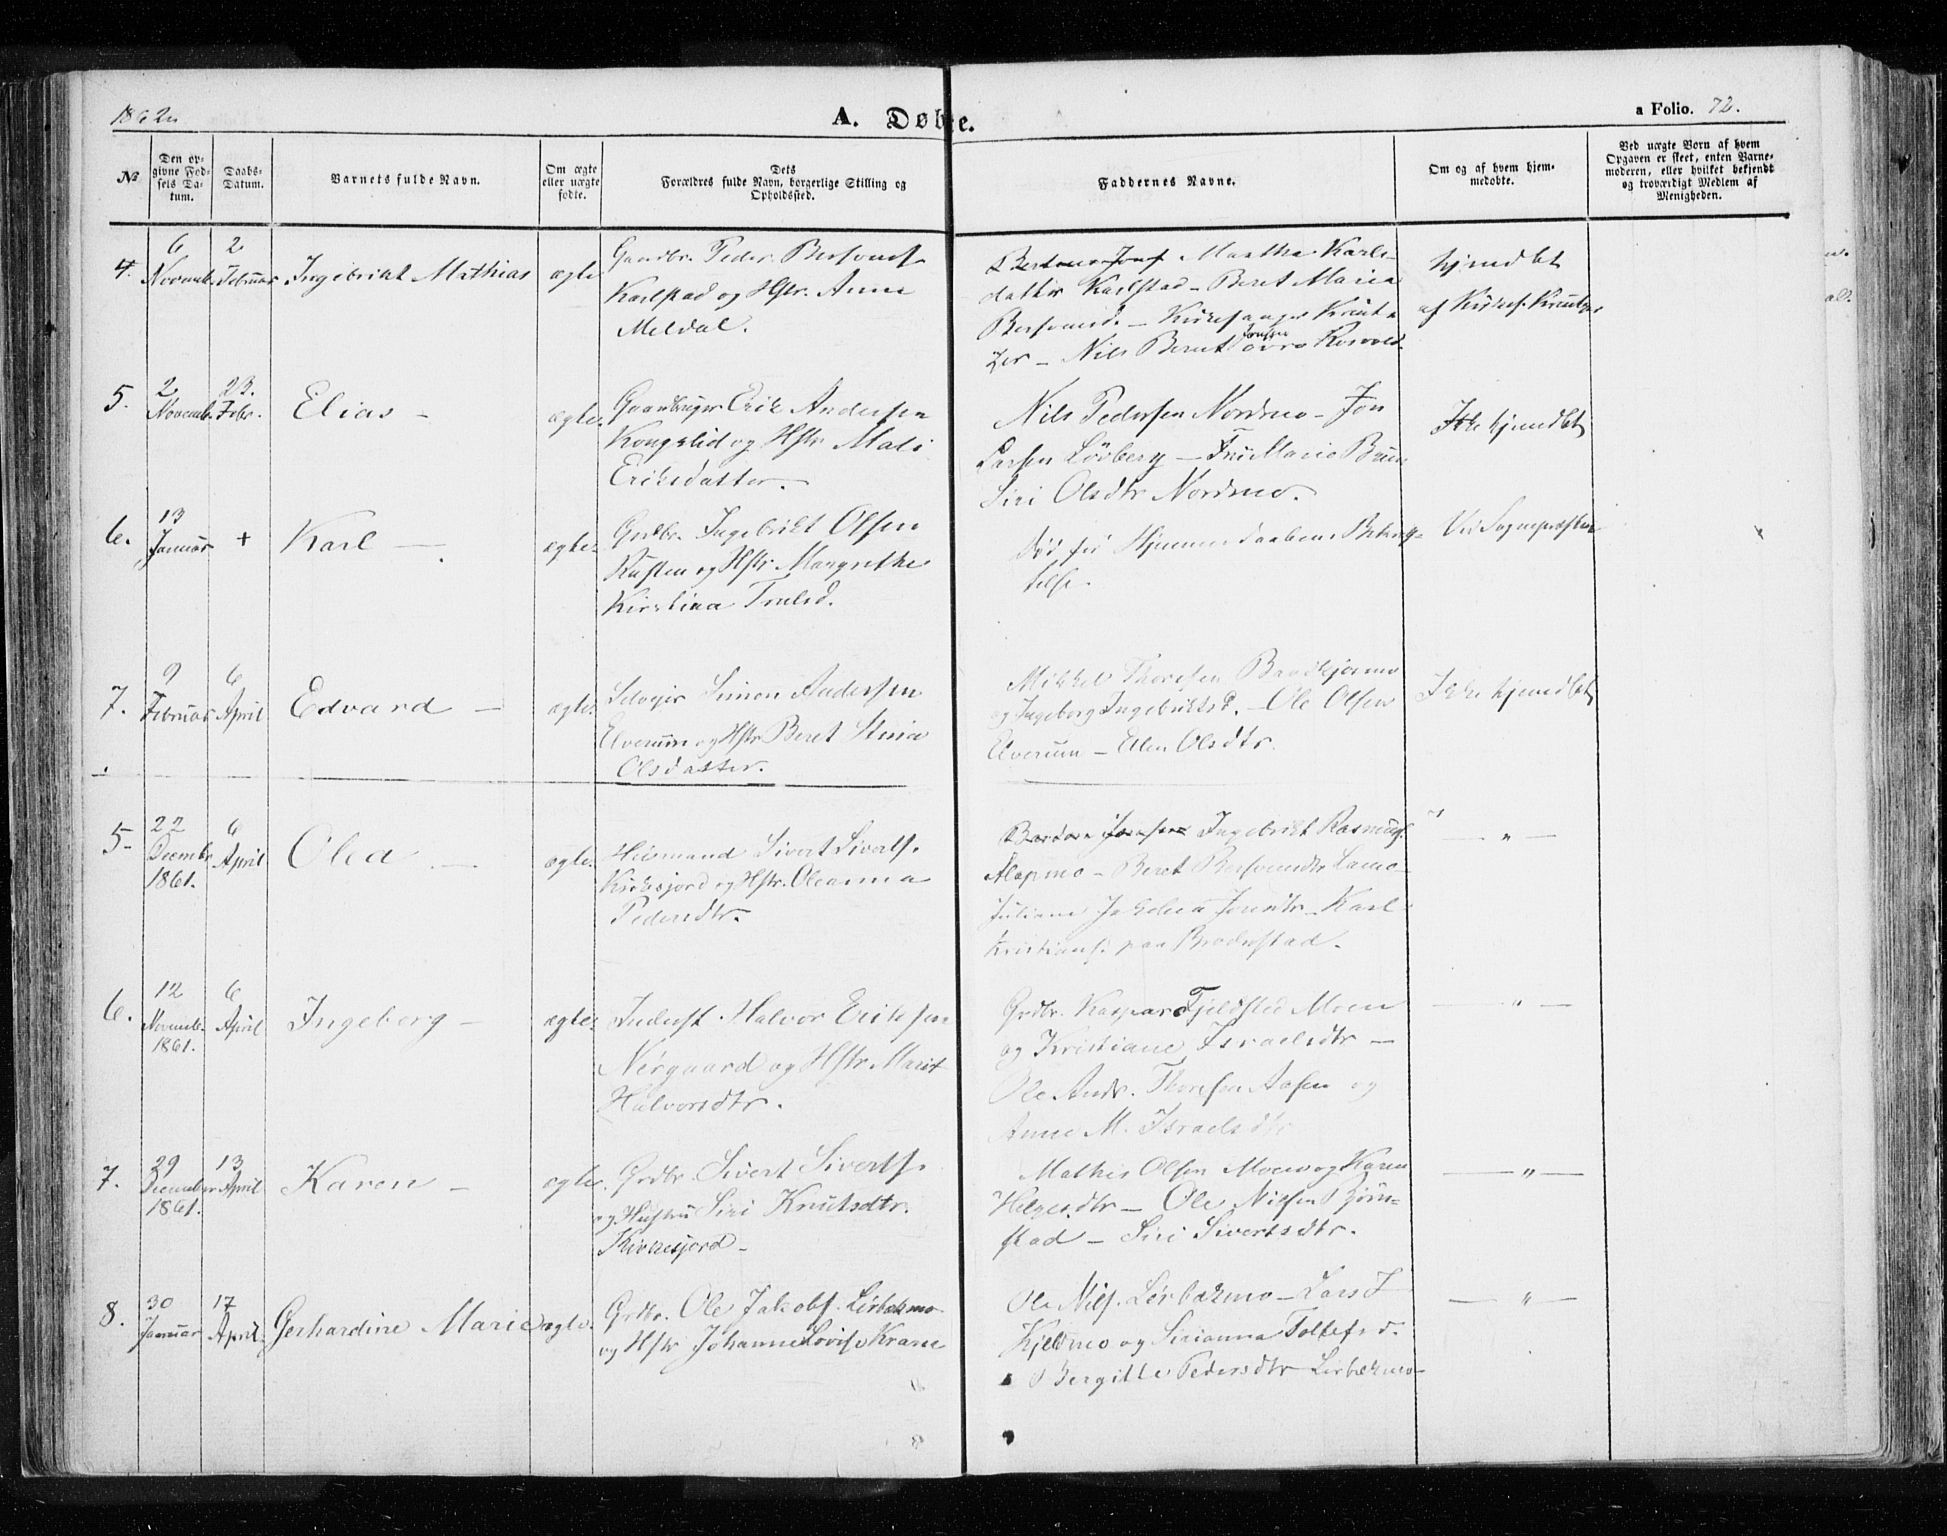 1862
A. Døbte.
a Folio. 72.
No
Den opgivne Fødsels Datum.
Daabs-Datum.
Barnets fulde Navn.
Om ægte eller uægte fødte.
Dets Forældres fulde Navn, borgerlige Stilling og Opholdssted.
Faddernes Navne.
Om og af hvem hjemmedøbte.
Ved uægte Børn af hvem Opgaven er skeet, enten Barnemoderen, eller hvilket bekjendt og troværdigt Medlem af Menigheden.
4.
6 Novemb.
2 Februar
Ingebrikt Mathias
ægte
Gaardbr. Peder
Karlstad og Hstr. Anne
Meldal.
Martha Karls-
datter Karlstad - Beret Maria
- Kirkesanger
- Nils Beret
hjemdbt
af Kirkes.
5.
2 Novemb.
23. Febr.
Elias -
ægte.
Gaardbruger Erik Andersen
Kongslid og Hstr. Mali
Eriksdatter.
Nils Pedersen Nordmo - Jon
Larsen Lövberg -
Siri Olsdtr Nordmo.
Ikke hjemdbt
6.
13 Januar
+
Karl -
ægte
Grdbr. Ingebrikt Olsen
Rusten og Hstr. Mangrethe
Kirstina
Död før Hjemmedaabens Bekræf-
telse.
Ved Sognepræsten
7.
9 Februar
6 April
Edvard -
ægte.
Simon Andersen
Elverum og Hstr Beret Stina
Olsdatter.
Mikkel Thoresen
og Ingeborg Ingebriktsd. - Ole Olsen
Elverum - Elen Olsdtr.
Ikke hjemdbt
5
22 Decembr 1861.
6 April
Olea -
ægte.
Huusmand Sivert Siverts.
Kirkesjord og Hstr. Oleanna
Pedersdtr.
Ingebrikt Rasmus.
Alapmo - Beret
Juliane Jonsdtr - Karl
Kristians. paa
- " -
6.
12 Novemb. 1861.
6 April
Ingeborg -
ægte.
Inderst Halvor Eriksen
Nergaard og Hstr. Marit
Halvorsdtr.
Grdbr. Kaspar Fjeldsted Moen
og Kristiane Israelsdtr -
Ole Andr. Thoresen Aasen og
Anne M. Israelsdtr
- " -
7.
29 December 1861.
13 April
Karen -
ægte.
Grdbr. Sivert Siverts.
og Hustru Siri Knutsdtr.
Kirkesjord -
Mathis Olsen Moen og Karen
Helgesdtr - Ole Nilsen Björn-
stad - Siri Sivertsdtr.
- " -
8.
30 Januar
17 April
Gerhardine Marie
ægte.
Grdbr. Ole Jakobs. Lerbakmo
og Hstr Johanne Lovise Krane
Ole Nils. Lerbakmo - Lars J
Kjeldmo og Sirianna Tollefsd.
Bergitte Pedersdtr Lerbakmo
- " -